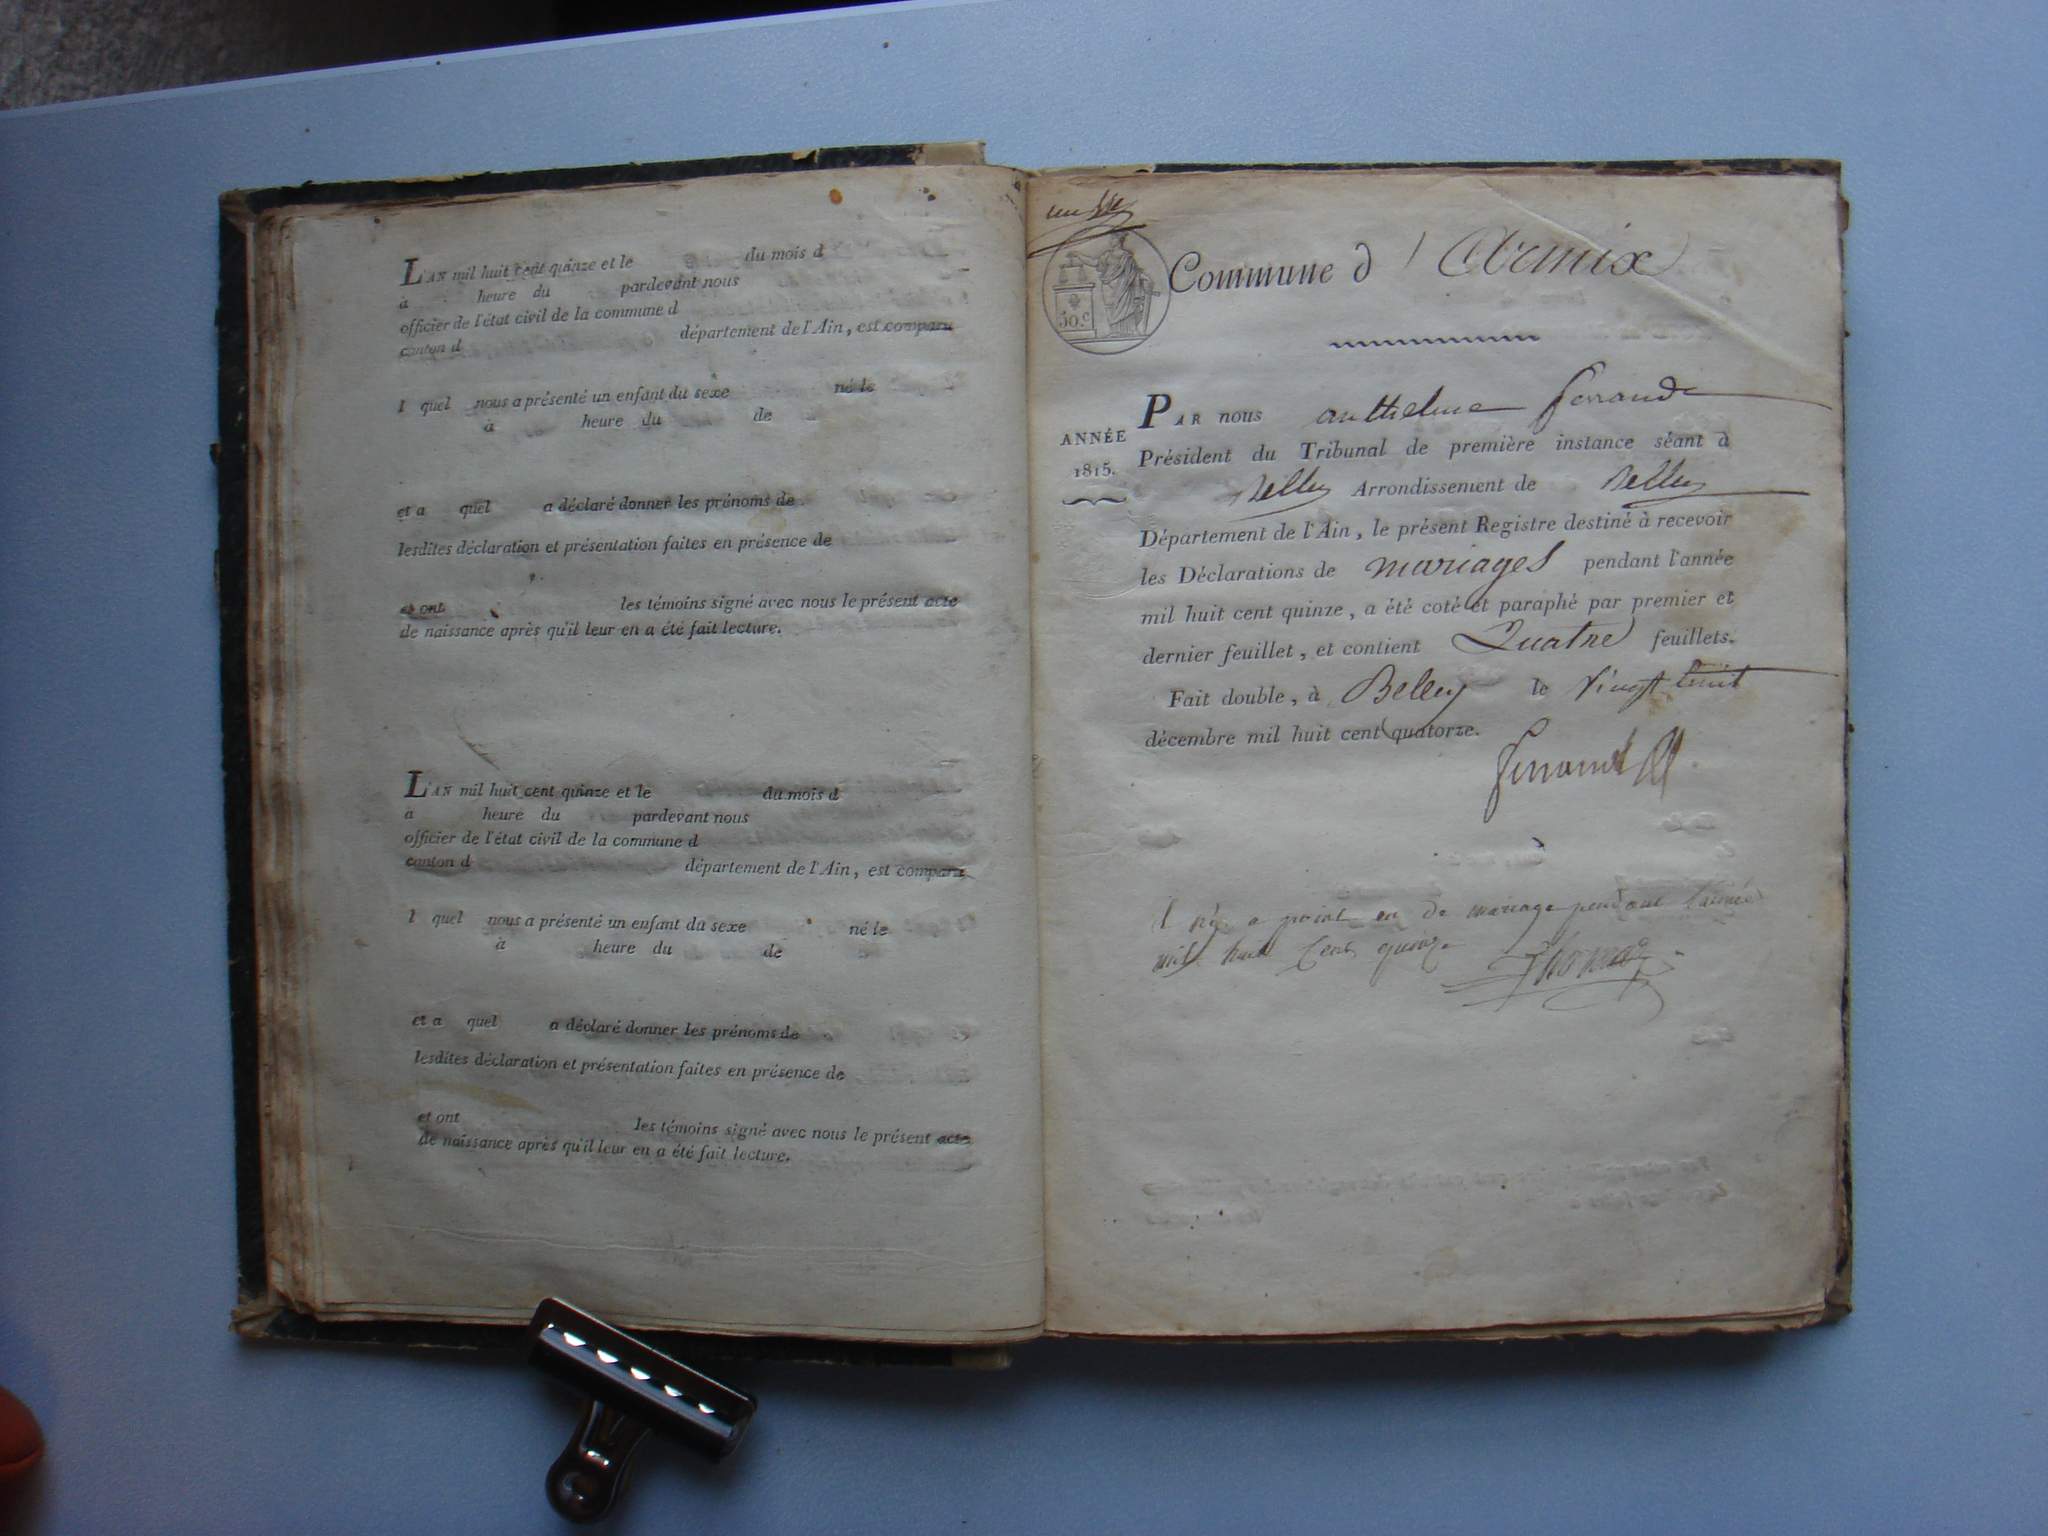 L'AN mil huit cent quinze et le du mois d
à heure du pardevant nous
officier de l'état civil de la commune d
canton d département de l'Ain, est comparu
l quel nous a présenté un enfant du sexe né le
à heure du de
et a quel a déclaré donner les prénoms de
lesdites déclaration et présentation faites en présence de
et ont les témoins signé avec nous le présent acte
de naissance après qu'il leur en a été fait lecture.
L'AN mil huit cent quinze et le du mois d
à heure du pardevant nous
officier de l'état civil de la commune d
canton d département de l'Ain, est comparu
l quel nous a présenté un enfant du sexe né le
à heure du de
et a quel a déclaré donner les prénoms de
lesdites déclaration et présentation faites en présence de
et ont les témoins signé avec nous le présent acte
de naissance après qu'il leur en a été fait lecture.
50.c
Commune d'Armix
ANNÉE
1815.
PAR nous anthelme ferrand
Président du Tribunal de première instance séant à
Belley Arrondissement de Belley
Département de l'Ain, le présent Registre destiné à recevoir
les Déclarations de mariages pendant l'année
mil huit cent quinze, a été coté et paraphé par premier et
dernier feuillet, et contient Quatre feuillets.
Fait double, à Belley le vingt huit
décembre mil huit cent quatorze.
ferrand
Il n'y a point eu de mariage pendant l'année
mil huit cent quinze Thomas